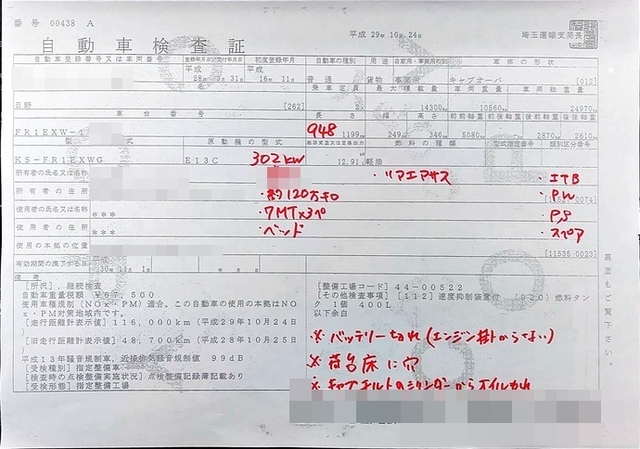 番号 00438 A
平成 29年 10月 24日
埼玉運輸支局長
自動車検査証
自動車登録番号又は車両番号 登録年月日/交付年月日 初度登録年月 自動車の種別 用途 自家用・事業用の別 車体の形状
平成 28年 3月31日 平成 16年 11月 普通 貨物 事業用 キャブオーバ [012]
乗車定員 最大積載量 車両重量 車両総重量
日野 [262] 2 14300 10560 24970
車台番号 長さ 幅 高さ 前前軸重 前後軸重 後前軸重 後後軸重
FR1EXW-1 948 1199 249 346 5080 2870 2610
型式 原動機の型式 燃料の種類 型式指定番号 類別区分番号
KS-FR1EXWG E13C 302kw 12.91 軽油
所有者の氏名又は名称 ・リアエアサス ・ITB
所有者の住所 ・約120万キロ ・PW
使用者の氏名又は名称 *** ・7MT×3ペ ・PS
使用者の住所 *** ・ベッド ・スペア
使用の本拠の位置 *** [11535 0023]
有効期間の満了する日 平成 30年 11月 1日
備考
[所沢]，継続検査
自動車重量税額 ¥67,500
使用車種規制（NOx・PM）適合，この自動車の使用の本拠はNOx・PM対策地域内です。
[走行距離計表示値] 116,000km（平成29年10月24日）
[旧走行距離計表示値] 48,700km（平成28年10月25日）
平成13年騒音規制車，近接排気騒音規制値 99dB
[受検種別] 指定整備車
[検査時の点検整備実施状況] 点検整備記録簿記載あり
[受検形態] 指定整備工場
[整備工場コード] 44-00522
[その他検査事項] [112] 速度抑制装置付 (920) 燃料タンク 1個 400L
以下余白
※バッテリー切れ（エンジン掛からない）
※荷台床に穴
※キャブチルトのシリンダーからオイルもれ
裏面もご覧下さい。